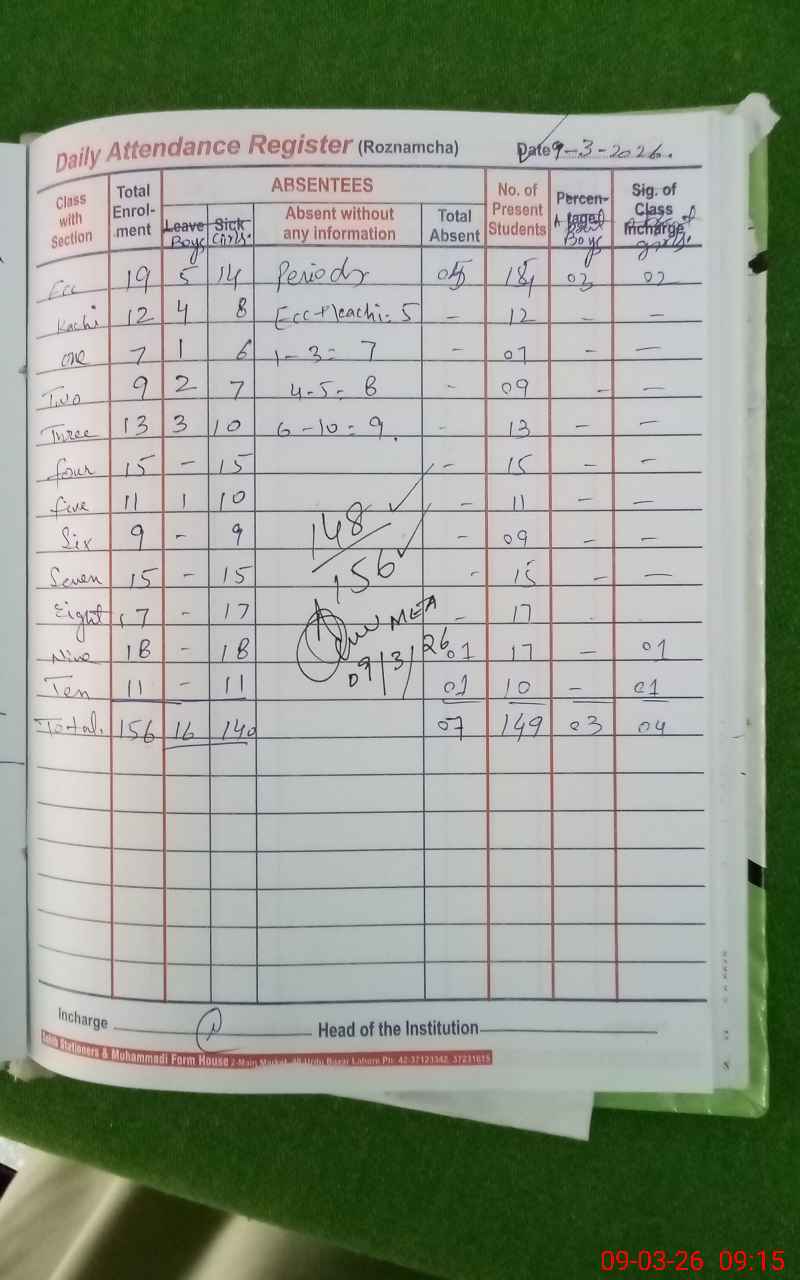 Daily Attendance Register (Roznamcha) Date 9-3-2026.
Class with Section Total Enrol-ment ABSENTEES No. of Present Students Percen- Sig. of Class Incharge
Leave Sick Absent without any information Total Absent
Boys Girls. Boys girls.
Ecc 19 5 14 Periods 03 02
Kachi 12 4 8 - 12 - -
one 7 1 6 1-3= 7 - 07 - -
Two 9 2 7 4-5= 8 - 09 - -
Three 13 3 10 6-10=9. - 13 - -
four 15 - 15 - 15 - -
five 11 1 10 - 11 - -
Six 9 - 9 - 09 - -
Seven 15 - 15 - 15 - -
Eight 17 - 17 - 17
Nine 18 - 18 01 17 - 01
Ten 11 - 11 01 10 - 01
Total. 156 16 140 07 149 03 04
148
156
MEA
09/3/26
Incharge Head of the Institution
Stationers & Muhammadi Form House 2-Main Market, 40-Urdu Bazar Lahore Ph: 42-37123342, 37231615
09-03-26 09:15